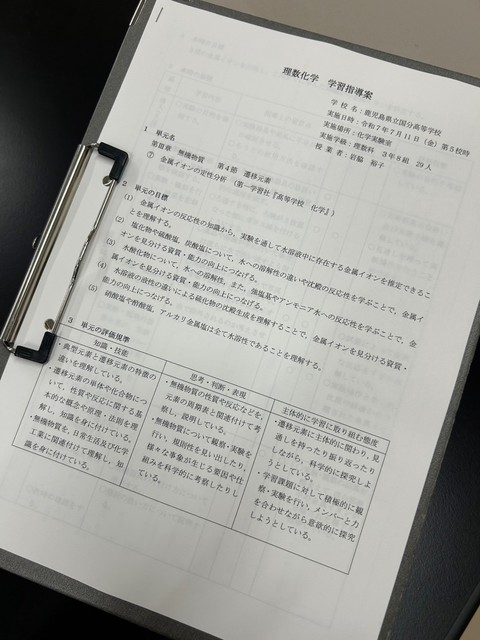 理数化学 学習指導案
学 校 名：鹿児島県立国分高等学校
実施日時：令和７年７月１１日（金）第５校時
実施場所：化学実験室
実施学級：理数科 ３年８組 ２９人
授 業 者：岩脇 裕子
１ 単元名
第Ⅲ章 無機物質 第４節 遷移元素
⑦ 金属イオンの定性分析（第一学習社『高等学校 化学』）
２ 単元の目標
(1) 金属イオンの反応性の知識から、実験を通して水溶液中に存在する金属イオンを推定できるこ
とを理解する。
(2) 塩化物や硫酸塩、炭酸塩について、水への溶解性の違いや沈殿の反応性を学ぶことで、金属イ
オンを見分ける資質・能力の向上につなげる。
(3) 水酸化物について、水への溶解性、また、強塩基やアンモニア水への反応性を学ぶことで、金
属イオンを見分ける資質・能力の向上につなげる。
(4) 水溶液の液性の違いによる硫化物の沈殿生成を理解することで、金属イオンを見分ける資質・
能力の向上につなげる。
(5) 硝酸塩や酢酸塩、アルカリ金属塩は全て水溶性であることを理解する。
３ 単元の評価規準
知識・技能
・典型元素と遷移元素の特徴の
違いを理解している。
・遷移元素の単体や化合物につ
いて、性質や反応に関する基
本的な概念や原理・法則を理
解し、知識を身に付けている。
・無機物質を、日常生活及び化学
工業に関連付けて理解し、知
識を身に付けている。
思考・判断・表現
・無機物質の性質や反応などを、
元素の周期表と関連付けて考
察し、説明している。
・無機物質について観察・実験を
行い、規則性を見い出したり、
様々な事象が生じる要因や仕
組みを科学的に考察したりし
ている。
主体的に学習に取り組む態度
・遷移元素に主体的に関わり、見
通しを持ったり振り返ったり
しながら、科学的に探究しよ
うとしている。
・学習課題に対して積極的に観
察・実験を行い、メンバーと力
を合わせながら意欲的に探究
しようとしている。